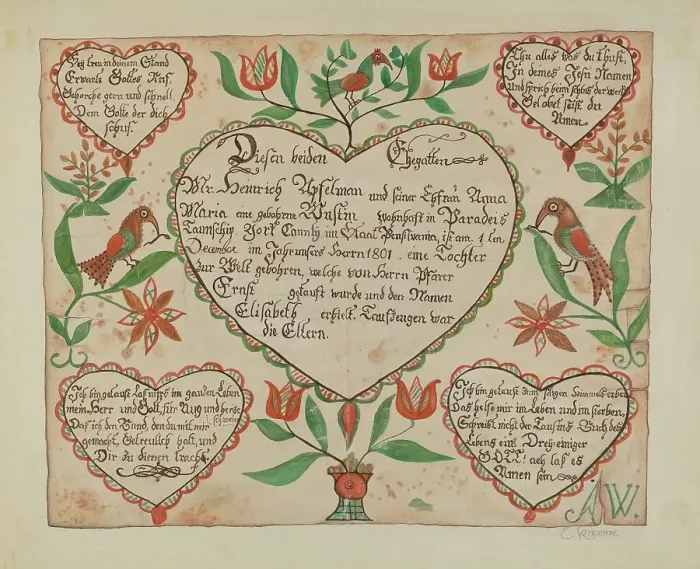 Sey treu in deinem Stand
Erwarte Gottes Ruf.
Gehorche gern und schnell
Dem Gotte der dich
schuf.
Thu alles was du thust,
In deines Jesu Namen
Und sprich beim
Gelobet seist du
Amen.
Diesen beiden Ehegatten
Mr. Heinrich Apfelman und seiner Ehfrau Anna
Maria eine gebohrne wohnhaft in Paradeis
Taunschip York Caunty im Staat Pensilvania, ist am 1 ten
December im Jahr unsers Herrn 1801. eine Tochter
zur Welt gebohren, welche von Herrn Pfarer
Ernst getauft wurde und den Namen
Elisabeth erhielt. Taufzeugen war
die Eltern.
Ich bin getauft Laß mich's im ganzen Leben,
mein Herr und Gott, für Aug und herze
schweben
Daß ich den Bund, den du mit mir
gemacht, Getreulich halt, und
Dir zu dienen tracht.
Ich bin getauft zum Himmelserben,
Das helfe mir im Leben und im sterben,
Schreibt nicht der Taufbund Buch des
Lebens ein Dreyeiniger
GOTT! ach laß es
Amen sein
AW.